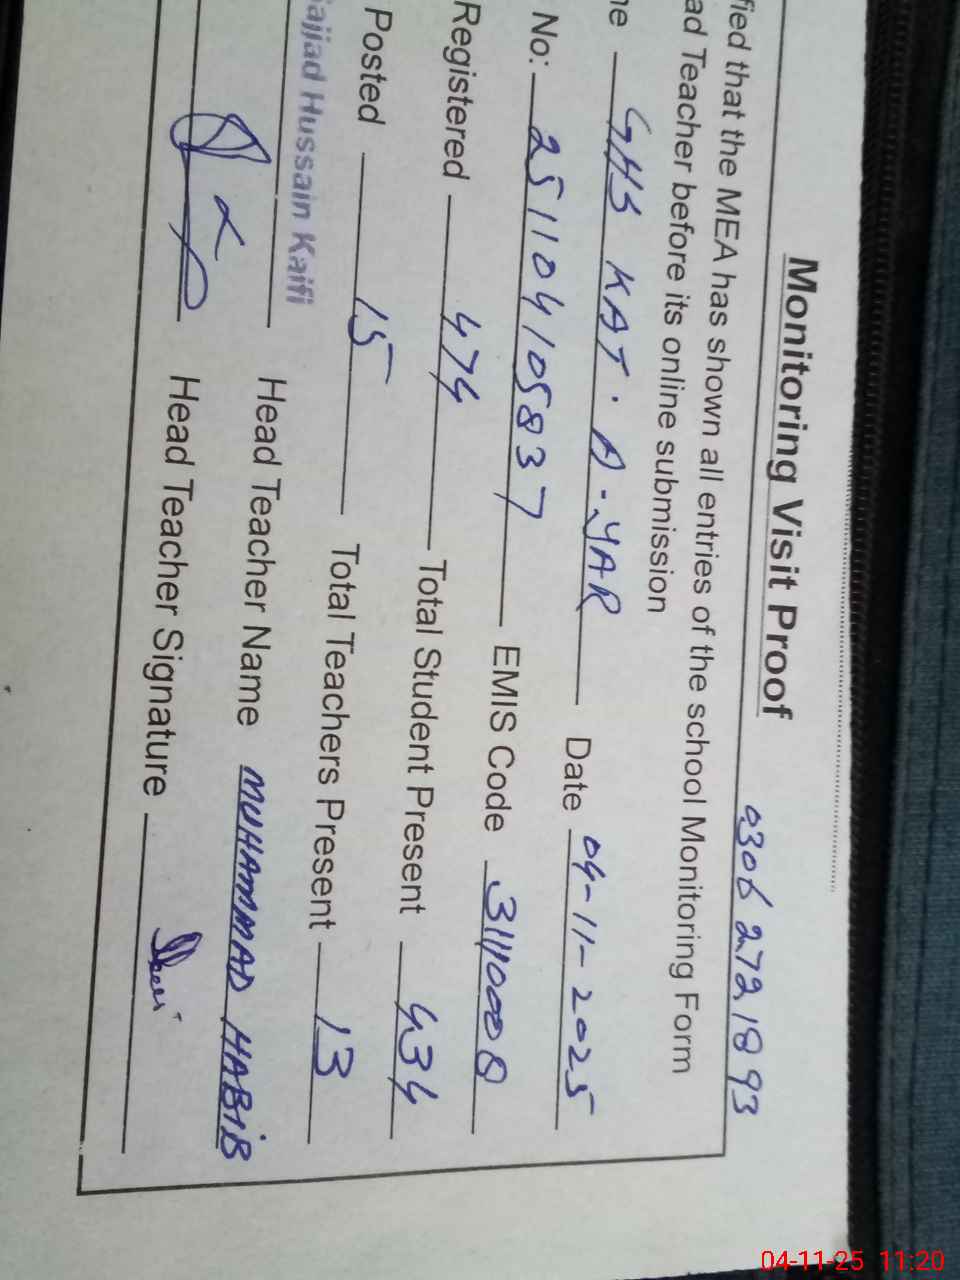 Monitoring Visit Proof
0306 2721893
fied that the MEA has shown all entries of the school Monitoring Form
ad Teacher before its online submission
ne GHS KAT. A. YAR Date 04-11-2025
No: 251104105837 EMIS Code 31110008
Registered 474 Total Student Present 434
Posted 15 Total Teachers Present 13
ajjad Hussain Kaifi Head Teacher Name MUHAMMAD HABIB
Head Teacher Signature
04-11-25 11:20